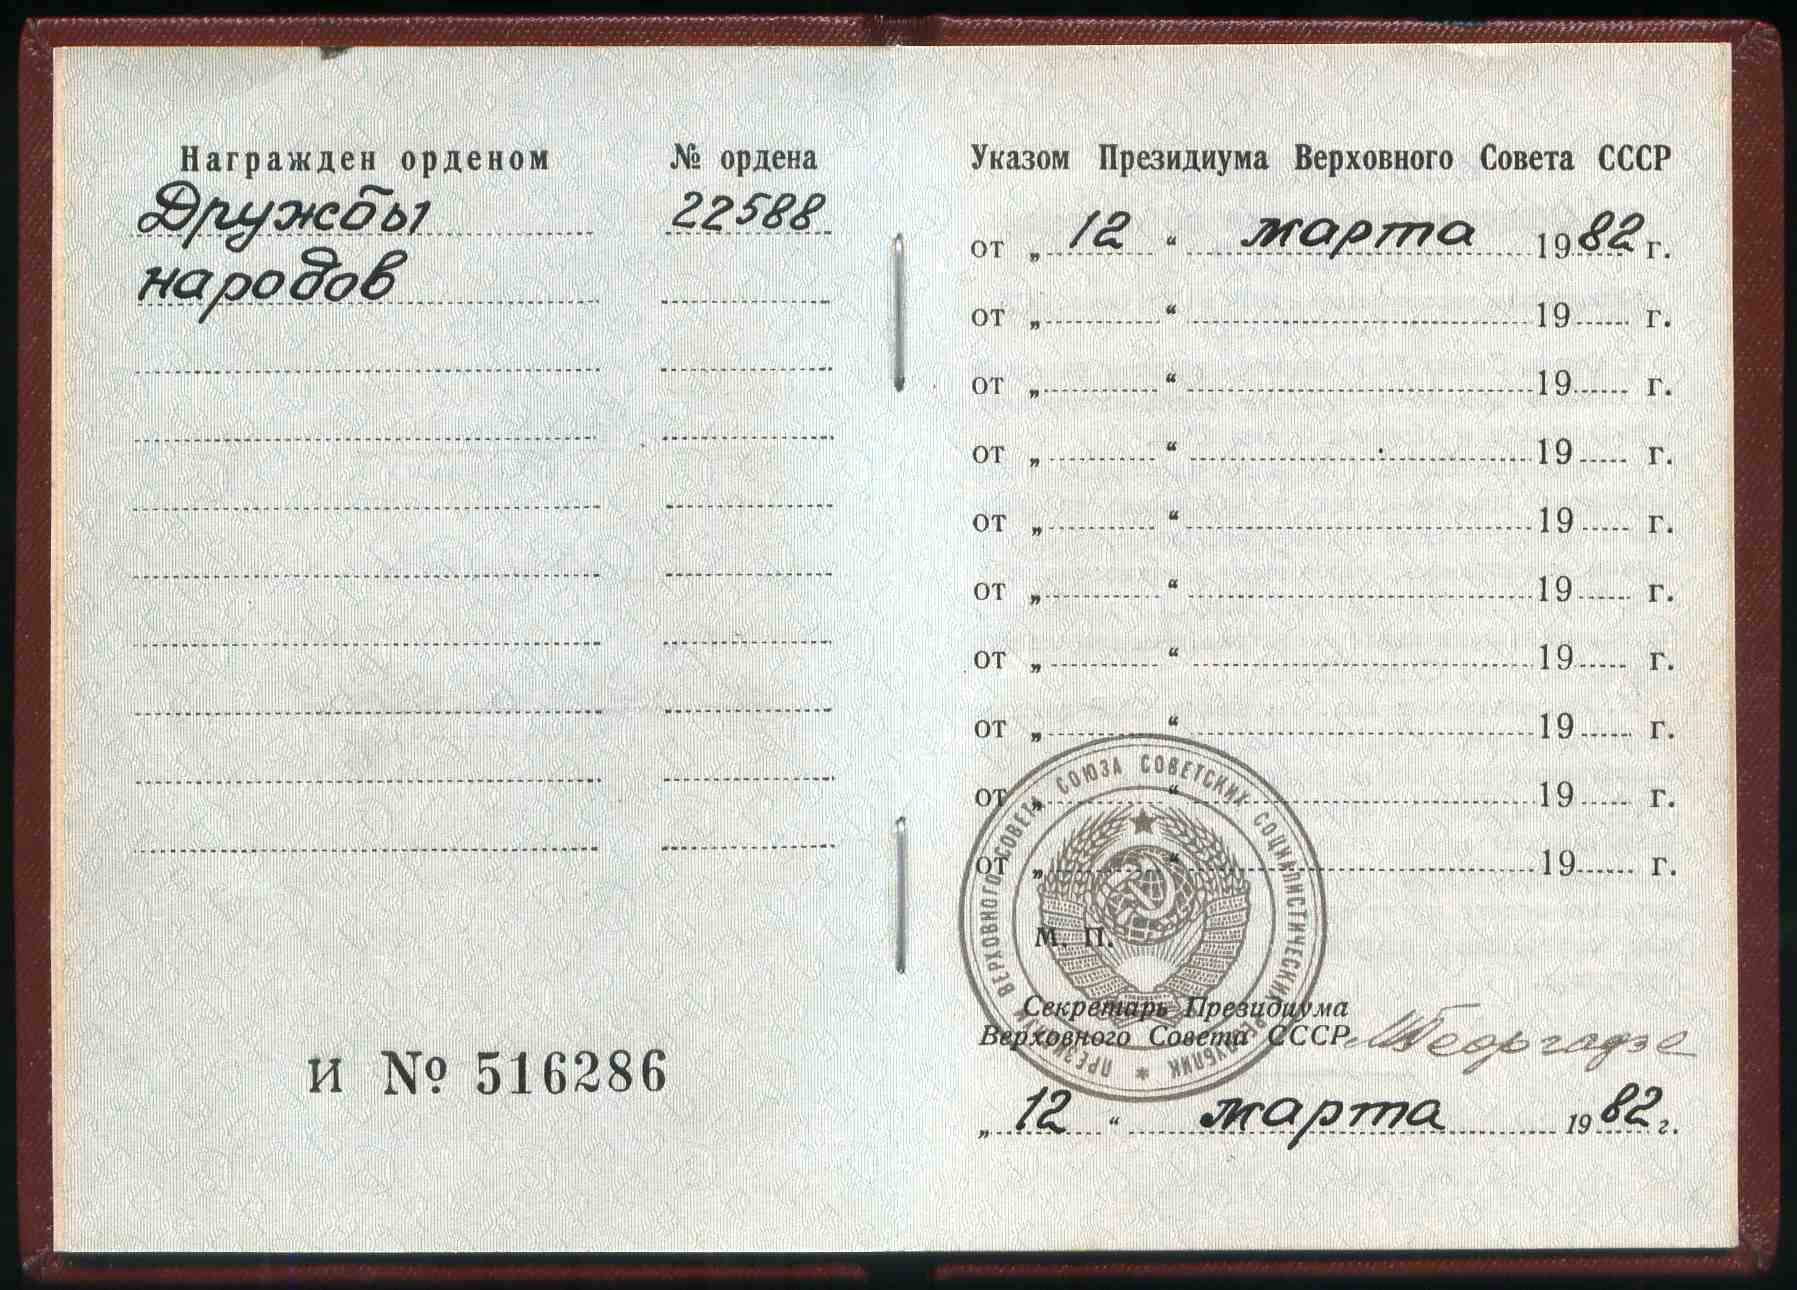 Награжден орденом № ордена
Дружбы 22588
народов
И № 516286
Указом Президиума Верховного Совета СССР
от „ 12 “ марта 1982 г.
от „ “ 19 г.
от „ “ 19 г.
от „ “ 19 г.
от „ “ 19 г.
от „ “ 19 г.
от „ “ 19 г.
от „ “ 19 г.
от „ “ 19 г.
от „ “ 19 г.
М. П.
ПРЕЗИДИУМ ВЕРХОВНОГО СОВЕТА СОЮЗА СОВЕТСКИХ СОЦИАЛИСТИЧЕСКИХ РЕСПУБЛИК *
Секретарь Президиума
Верховного Совета СССР МГеоргадзе
„ 12 “ марта 1982 г.